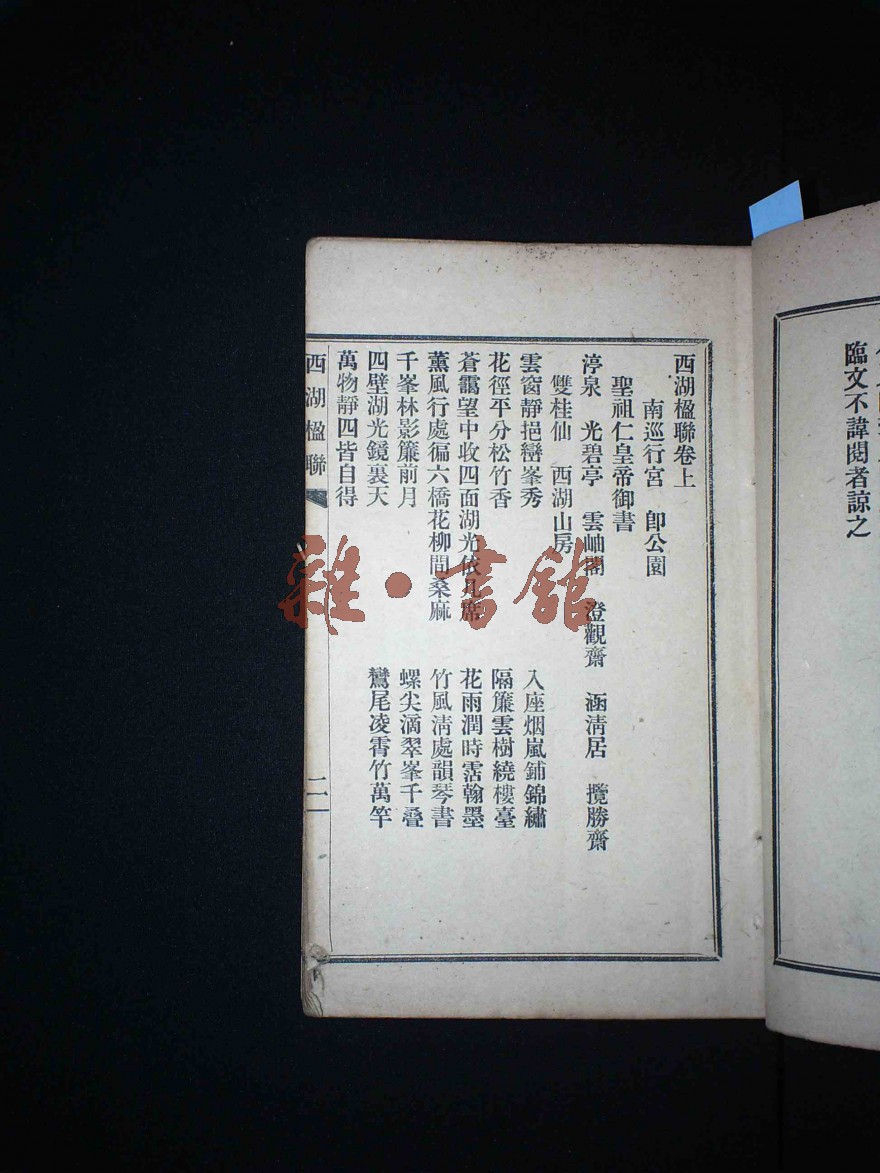 臨文不諱閱者諒之
西湖楹聯卷上
南巡行宮 卽公園
聖祖仁皇帝御書
渟泉 光碧亭 雲岫閣 澄觀齋 涵淸居 攬勝齋
雙桂仙 西湖山房
雲窗靜挹巒峯秀 入座烟嵐鋪錦繡
花徑平分松竹香 隔簾雲樹繞樓臺
蒼靄望中收四面湖光依几席 花雨潤時霑翰墨
薰風行處徧六橋花柳間桑麻 竹風淸處韻琴書
千峯林影簾前月 螺尖滴翠峯千叠
四壁湖光鏡裏天 鸞尾凌霄竹萬竿
萬物靜四皆自得
西湖楹聯
二
雜·書館